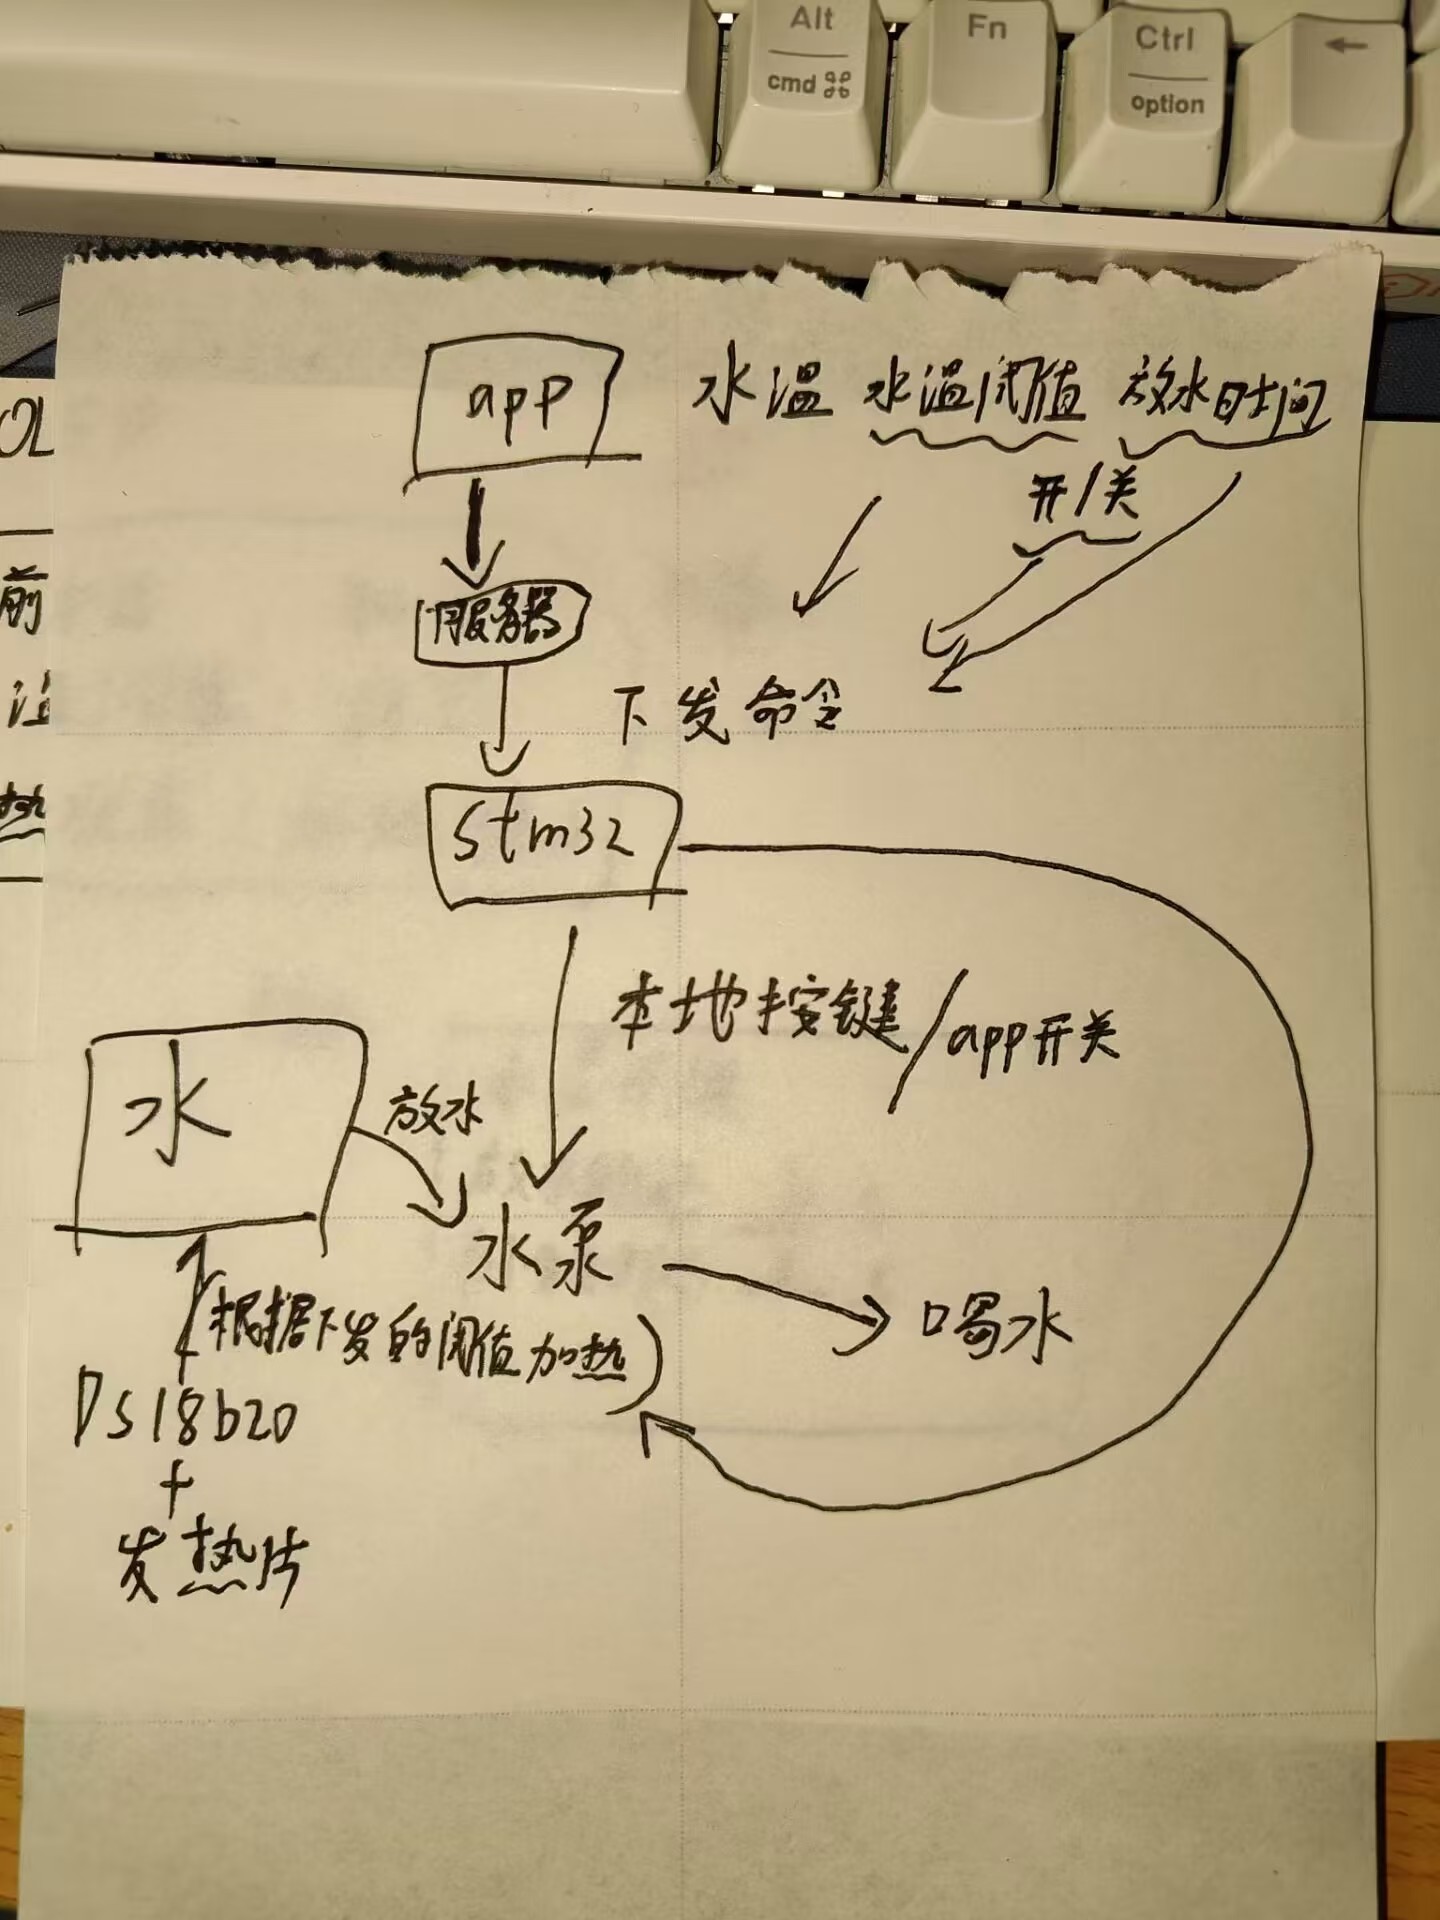 Alt
cmd ⌘
Fn
Ctrl
option
←
app
水温 水温阈值 放水时间
开/关
服务器
下发命令
stm32
本地按键/app开关
水
放水
水泵
喝水
根据下发的阈值加热)
DS18b20
+
发热片
OL
前
热